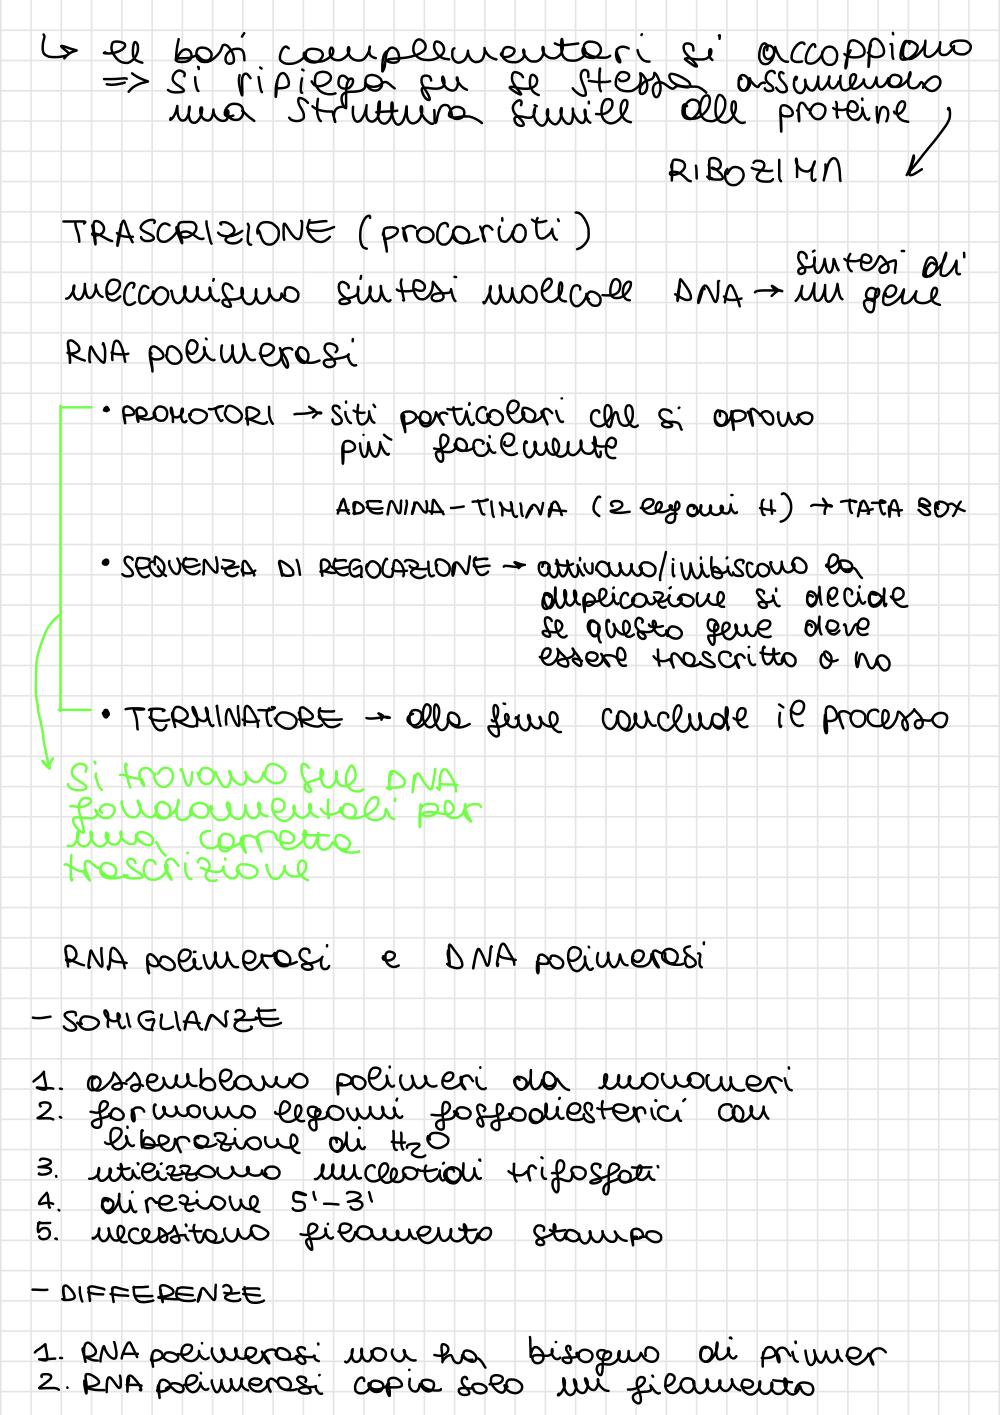 ↳ le basi complementari si accoppiano
=> si ripiega su se stessa assumendo
una struttura simile alle proteine
RIBOZIMA
TRASCRIZIONE (procarioti)
meccanismo sintesi molecole DNA → sintesi di
un gene
RNA polimerasi
• PROMOTORI → siti particolari che si aprono
più facilmente
ADENINA-TIMINA (2 legami H) → TATA BOX
• SEQUENZA DI REGOLAZIONE → attivano/inibiscono la
duplicazione si decide
se questo gene deve
essere trascritto o no
• TERMINATORE → alla fine conclude il processo
Si trovano sul DNA
fondamentali per
una corretta
trascrizione
RNA polimerasi e DNA polimerasi
- SOMIGLIANZE
1. assemblano polimeri da monomeri
2. formano legami fosfodiesterici con
liberazione di H₂O
3. utilizzano nucleotidi trifosfati
4. direzione 5'-3'
5. necessitano filamento stampo
- DIFFERENZE
1. RNA polimerasi non ha bisogno di primer
2. RNA polimerasi copia solo un filamento